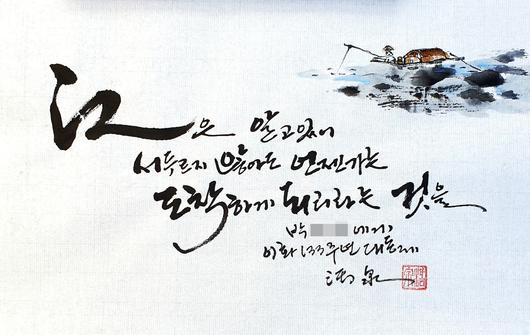 江은 알고있어
서두르지 않아도 언젠가는
도착하게 되리라는 것을
박 에게
이화 133주년 대동제